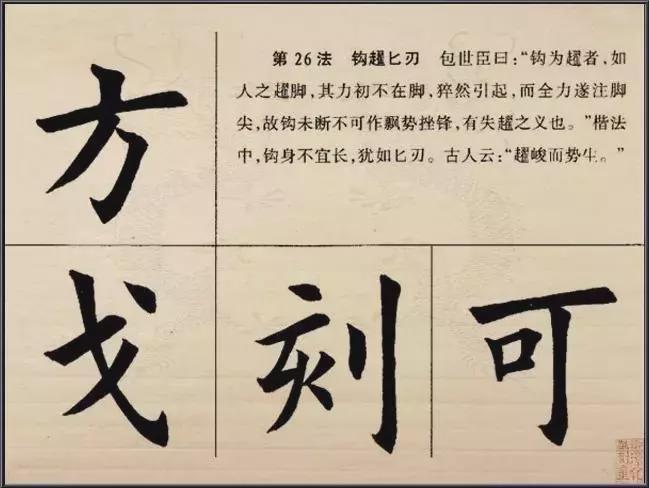 第26法 钩趯匕刃 包世臣曰：“钩为趯者，如
人之趯脚，其力初不在脚，猝然引起，而全力遂注脚
尖，故钩未断不可作飘势挫锋，有失趯之义也。”楷法
中，钩身不宜长，犹如匕刃。古人云：“趯峻而势生。”
方
戈
刻
可